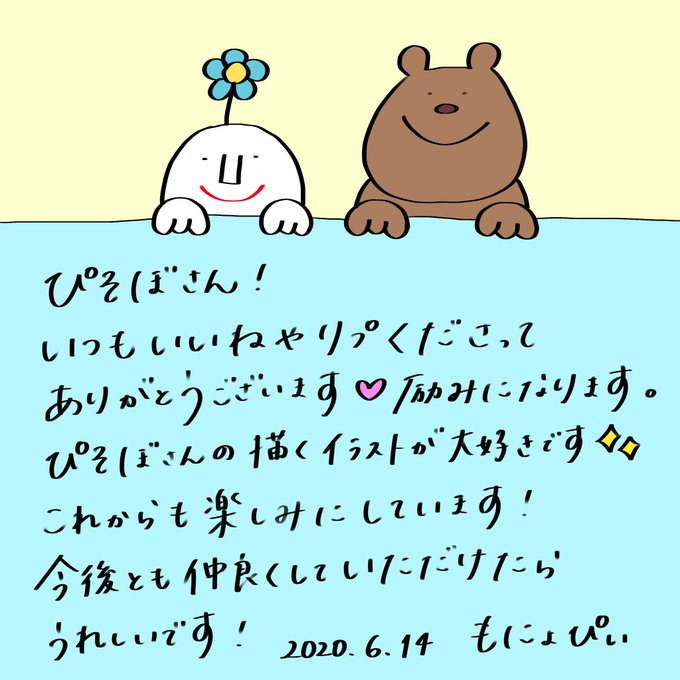 ぴそぼさん！
いつもいいねやリプくださって
ありがとうございます♥励みになります。
ぴそぼさんの描くイラストが大好きです✨
これからも楽しみにしています！
今後とも仲良くしていただけたら
うれしいです！ 2020.6.14 もにょぴぃ